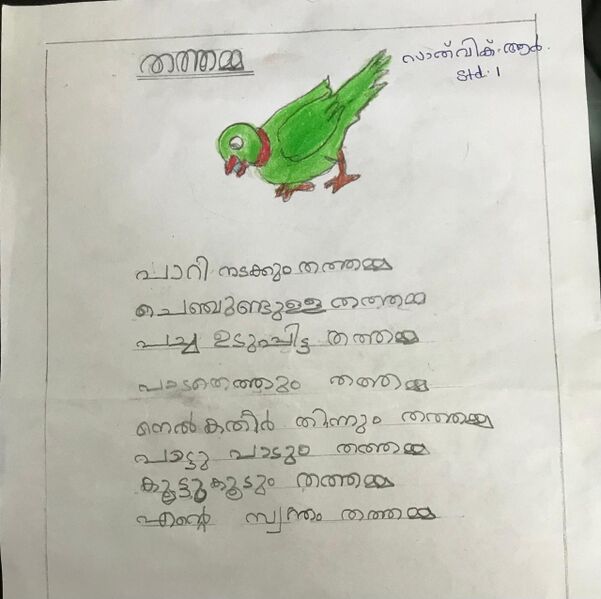 തത്തമ്മ
സാത്വിക്. ആർ.
Std. 1
പാറി നടക്കും തത്തമ്മ
ചെഞ്ചുണ്ടുള്ള തത്തമ്മ
പച്ച ഉടുപ്പിട്ട തത്തമ്മ
പാടത്തെത്തും തത്തമ്മ
നെൽകതിർ തിന്നും തത്തമ്മ
പാട്ടു പാടും തത്തമ്മ
കൂട്ടുകൂടും തത്തമ്മ
എന്റെ സ്വന്തം തത്തമ്മ